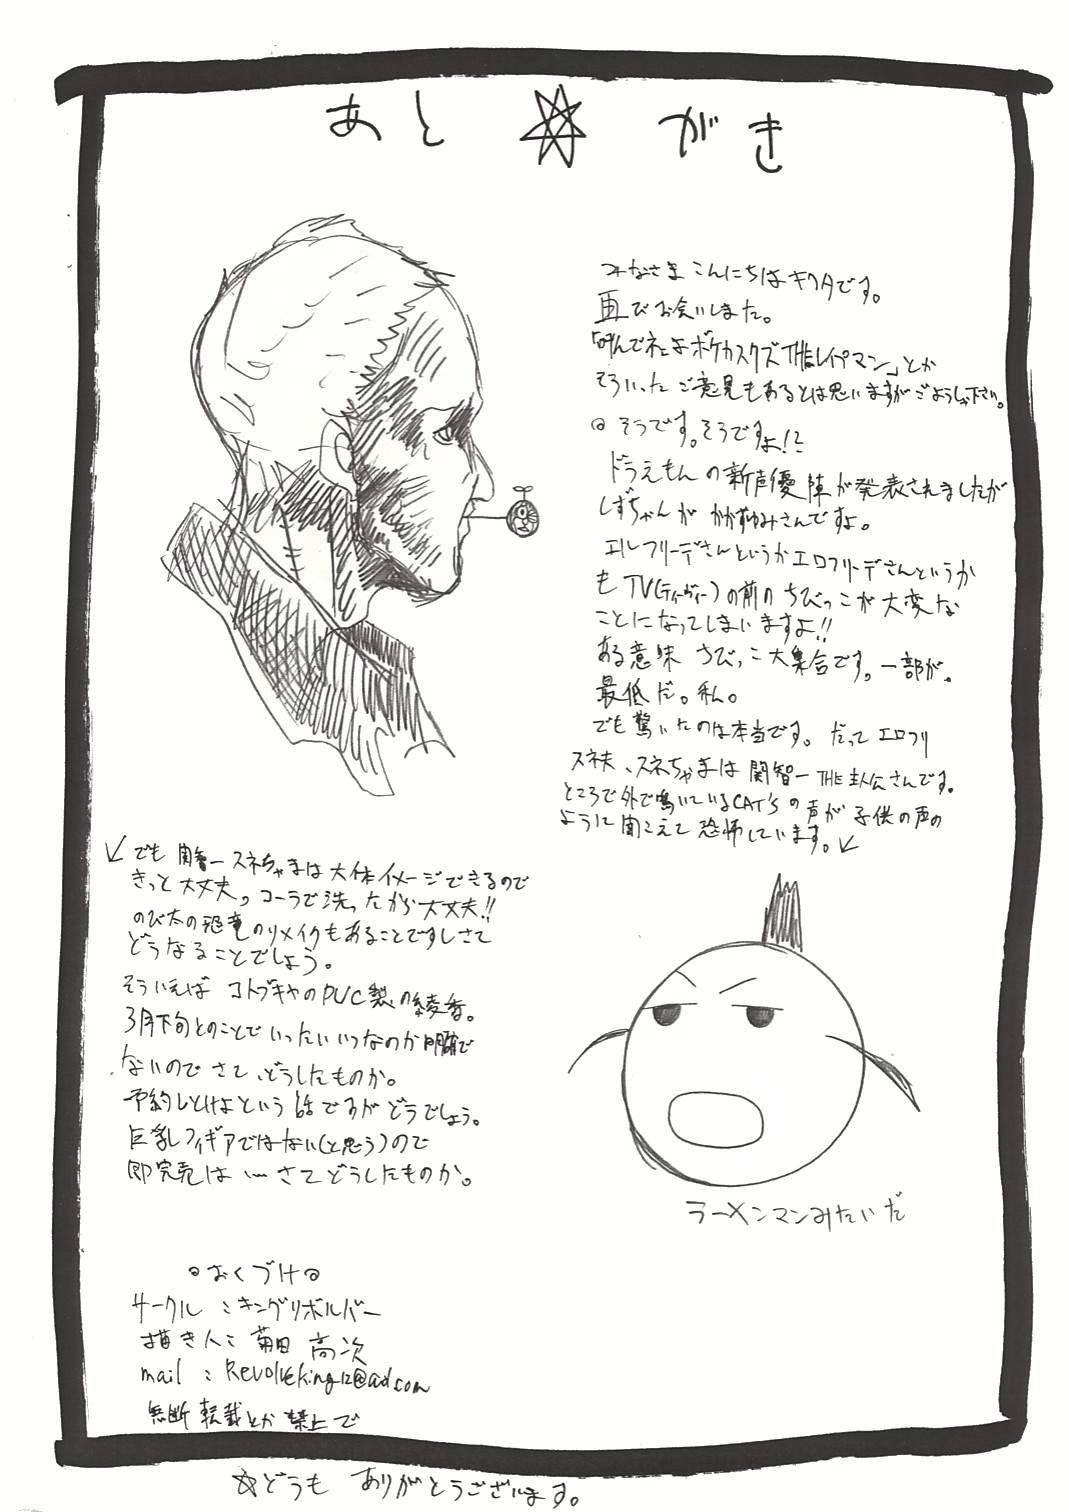 あと☆がき
みなさまこんにちはキクタです。
再びお会いしました。
「呼んでネェよボケカスクズTHEレイプマン」とか
そういったご意見もあるとは思いますがごようしゃ下さい。
◎そうです。そうですよ!!
ドラえもんの新声優陣が発表されましたが
しずちゃんがかかずゆみさんですよ。
エルフリーデさんというかエロフリーデさんというか
もうTV(ティーヴィー)の前のちびっこが大変な
ことになってしまいますよ!!
ある意味ちびっこ大集合です。一部が。
最低だ。私。
でも驚いたのは本当です。だってエロフリ
スネ夫、スネちゃまは関智一THE主人公さんです。
ところで外で鳴いているCAT'Sの声が子供の声の
ように聞こえて恐怖しています。↙
↙でも関智一スネちゃまは大体イメージできるので
きっと大丈夫。コーラで洗ったから大丈夫!!
のび太の恐竜のリメイクもあることですしさて
どうなることでしょう。
そういえばコトブキヤのPVC製の綾香。
3月下旬とのことでいったいいつなのか明確で
ないのでさて、どうしたものか。
予約しとけよという話ですがどうでしょう。
巨乳フィギアではない(と思う)ので
即完売は…さてどうしたものか。
ラーメンマンみたいだ
◎おくづけ◎
サークル:キングリボルバー
描き人:菊田 高次
mail:Revolveking12@aol.com
無断転載とか禁止で
☆どうもありがとうございます。